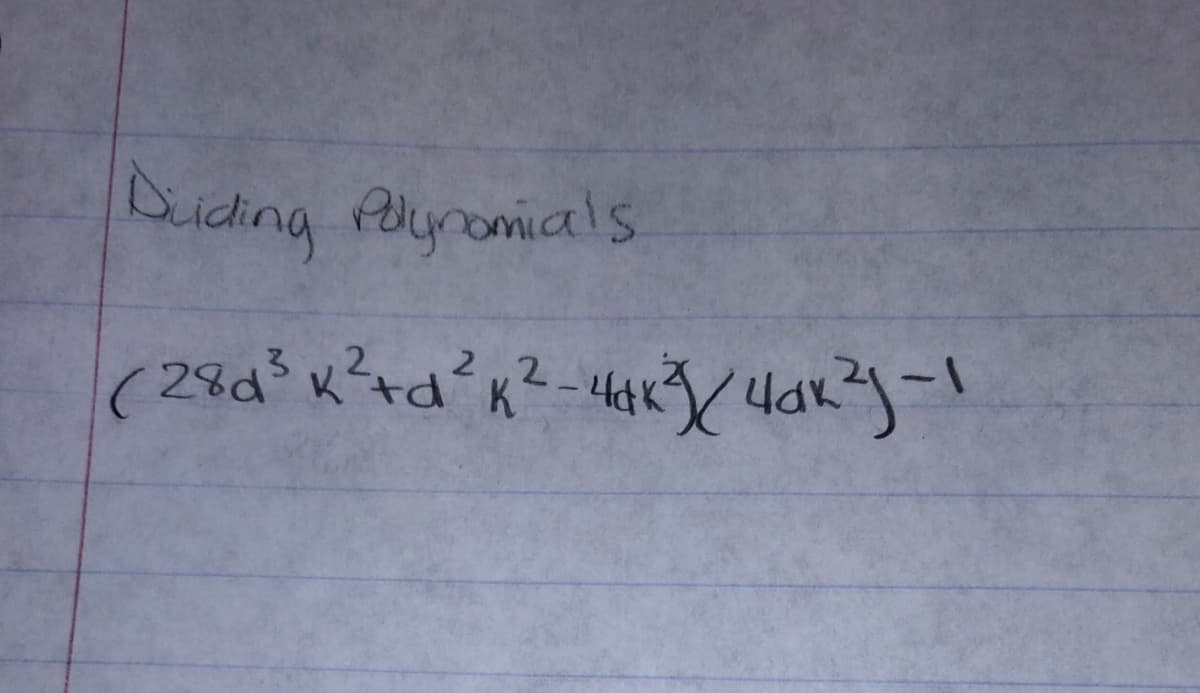 Diiding Polynomials
(28d³k²+d²k²-4dk²)(4dk²)-¹